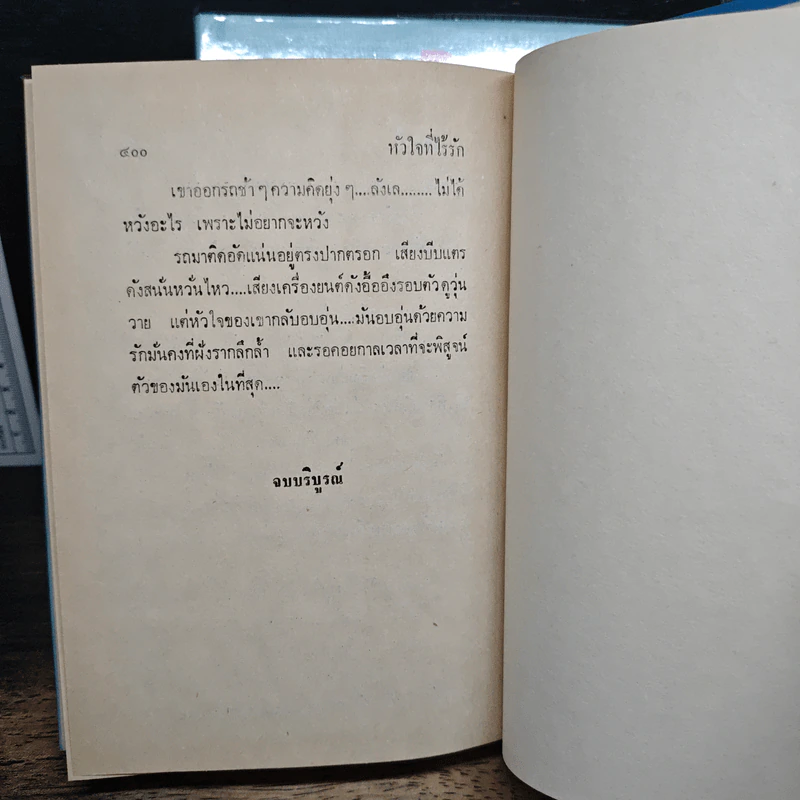 ๔๐๐ หัวใจที่ไร้รัก
เขาออกรถช้า ๆ ความคิดยุ่ง ๆ....ลังเล........ไม่ได้
หวังอะไร เพราะไม่อยากจะหวัง
รถมาติดอัดแน่นอยู่ตรงปากตรอก เสียงบีบแตร
ดังสนั่นหวั่นไหว....เสียงเครื่องยนต์ดังอื้ออึงรอบตัวดูวุ่น
วาย แต่หัวใจของเขากลับอบอุ่น....มันอบอุ่นด้วยความ
รักมั่นคงที่ฝังรากลึกล้ำ และรอคอยกาลเวลาที่จะพิสูจน์
ตัวของมันเองในที่สุด....
จบบริบูรณ์